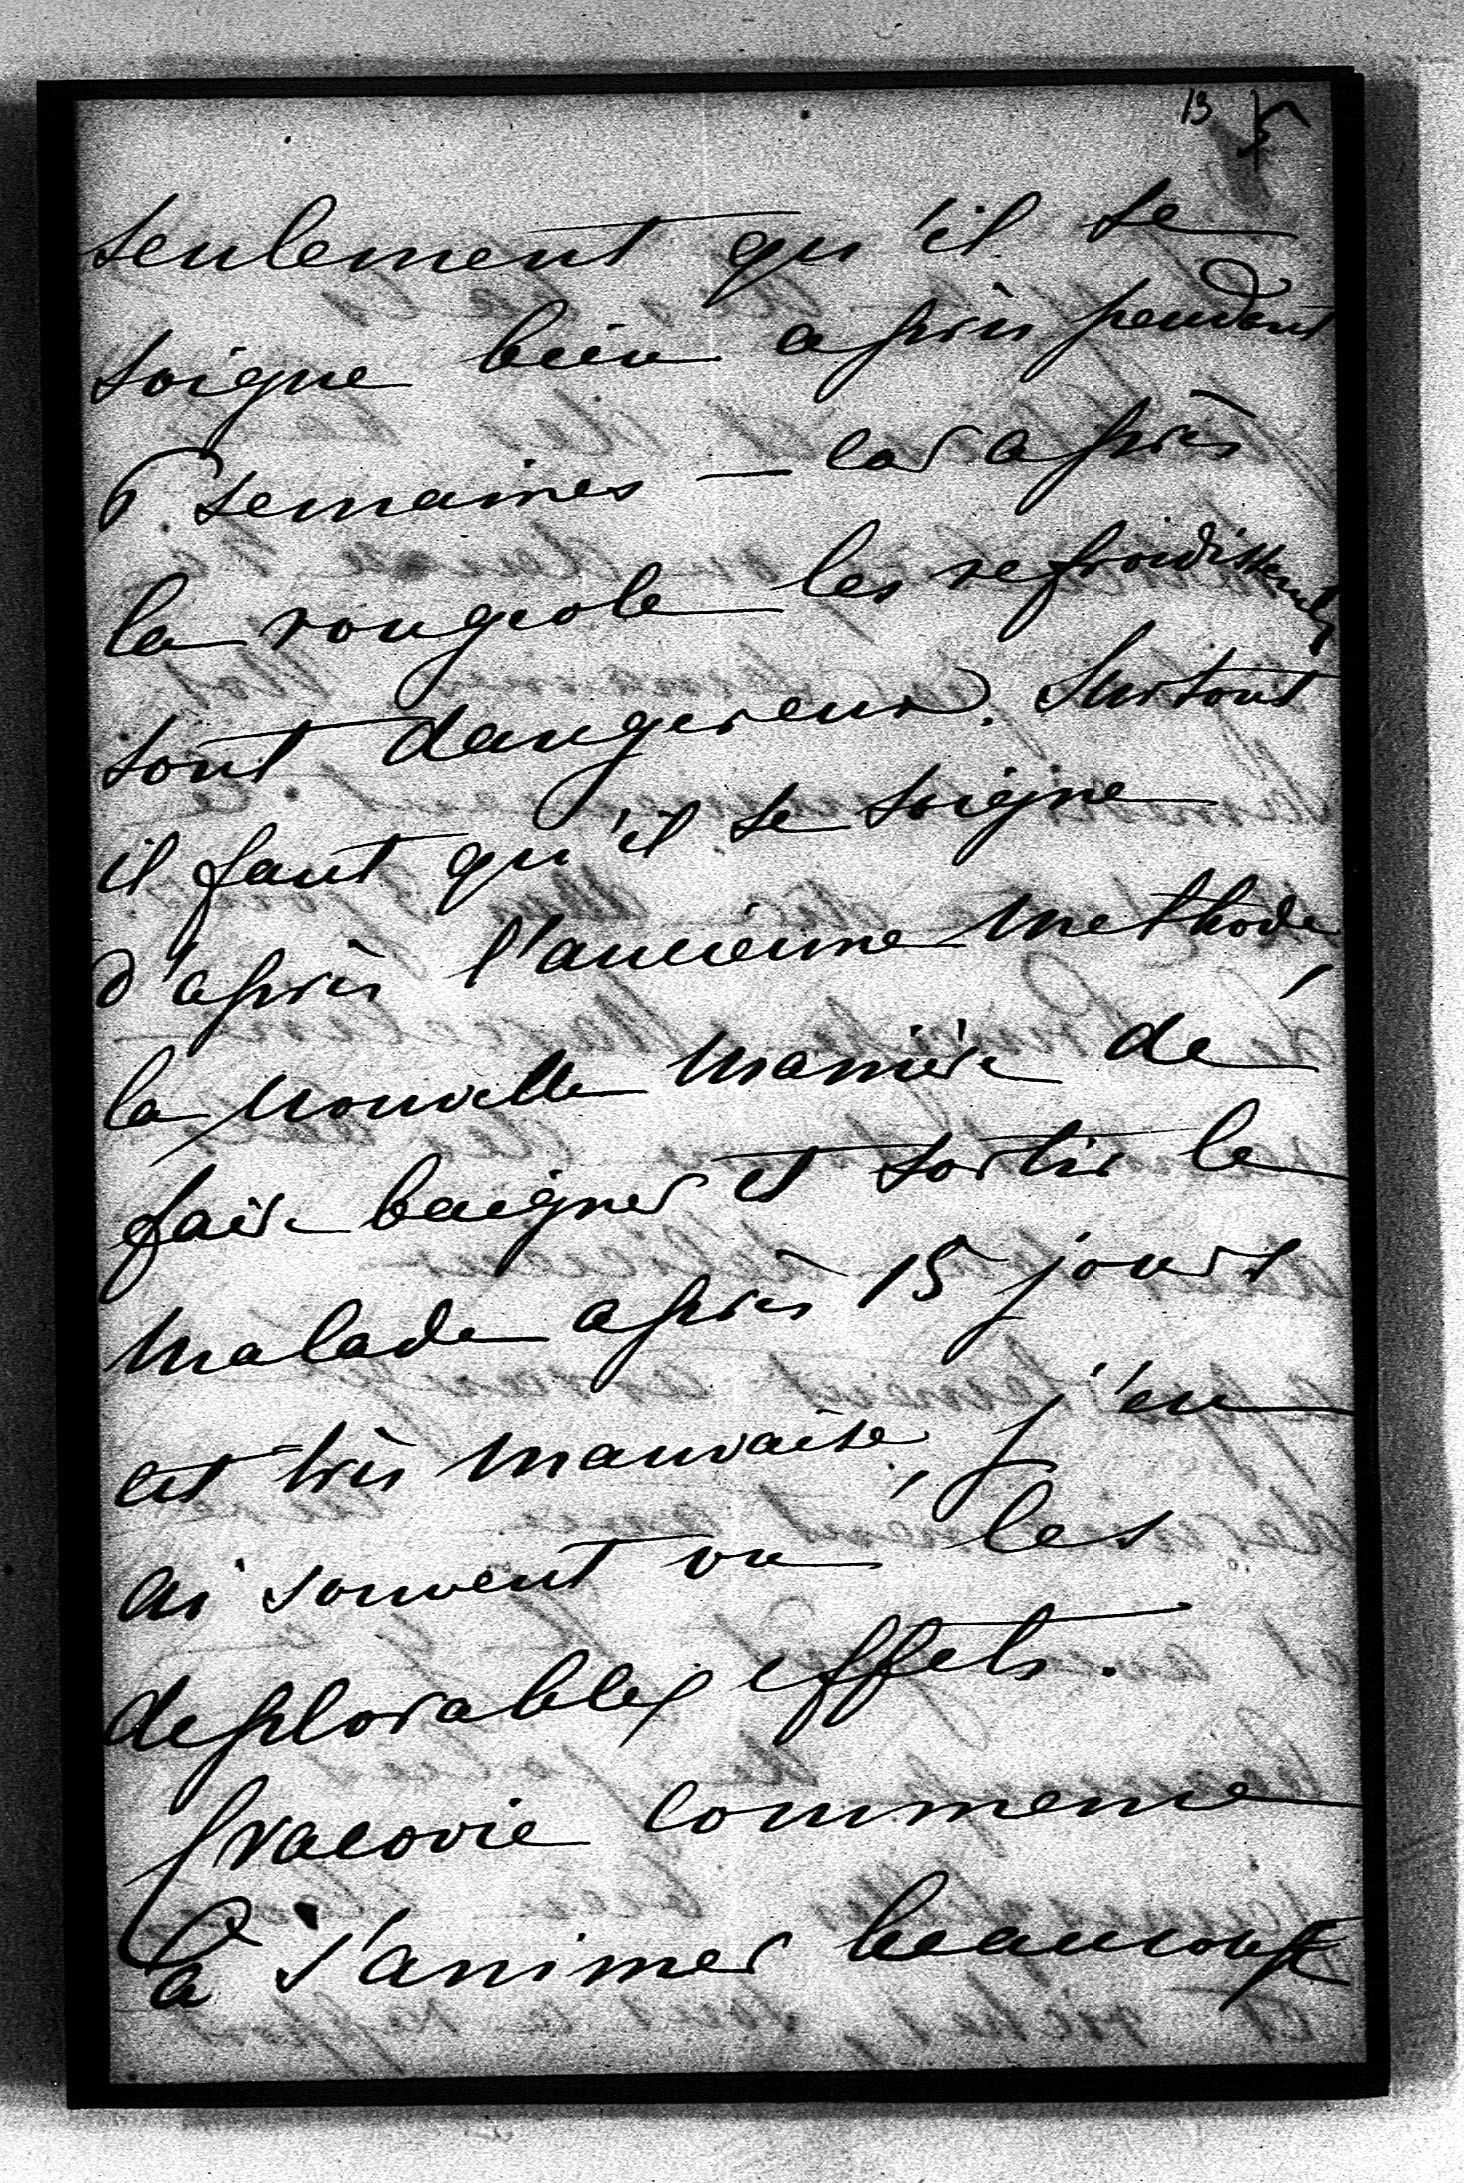 13
seulement qu'il se
soigne bien après pendant
6 semaines — car après
la rougeole les refroidissements
sont dangereux. Surtout
il faut qu'il se soigne
d'après l'ancienne methode,
la nouvelle manière de
faire baigner et sortir le
malade après 15 jours
est très mauvaise, j'en
ai souvent vu les
deplorables effets.
Cracovie commence
à s'animer beaucoup